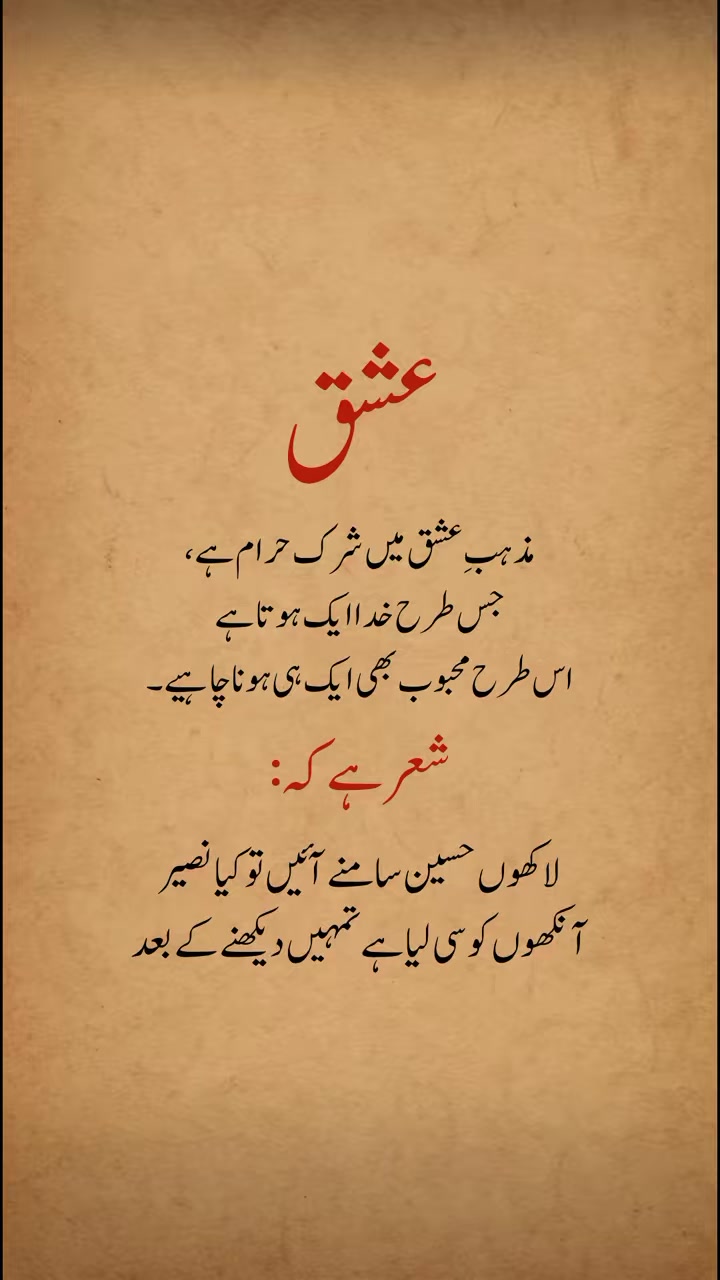 عشق
مذہبِ عشق میں شرک حرام ہے،
جس طرح خدا ایک ہوتا ہے
اس طرح محبوب بھی ایک ہی ہونا چاہیے۔
شعر ہے کہ:
لاکھوں حسین سامنے آئیں تو کیا نصیر
آنکھوں کو سی لیا ہے تمہیں دیکھنے کے بعد